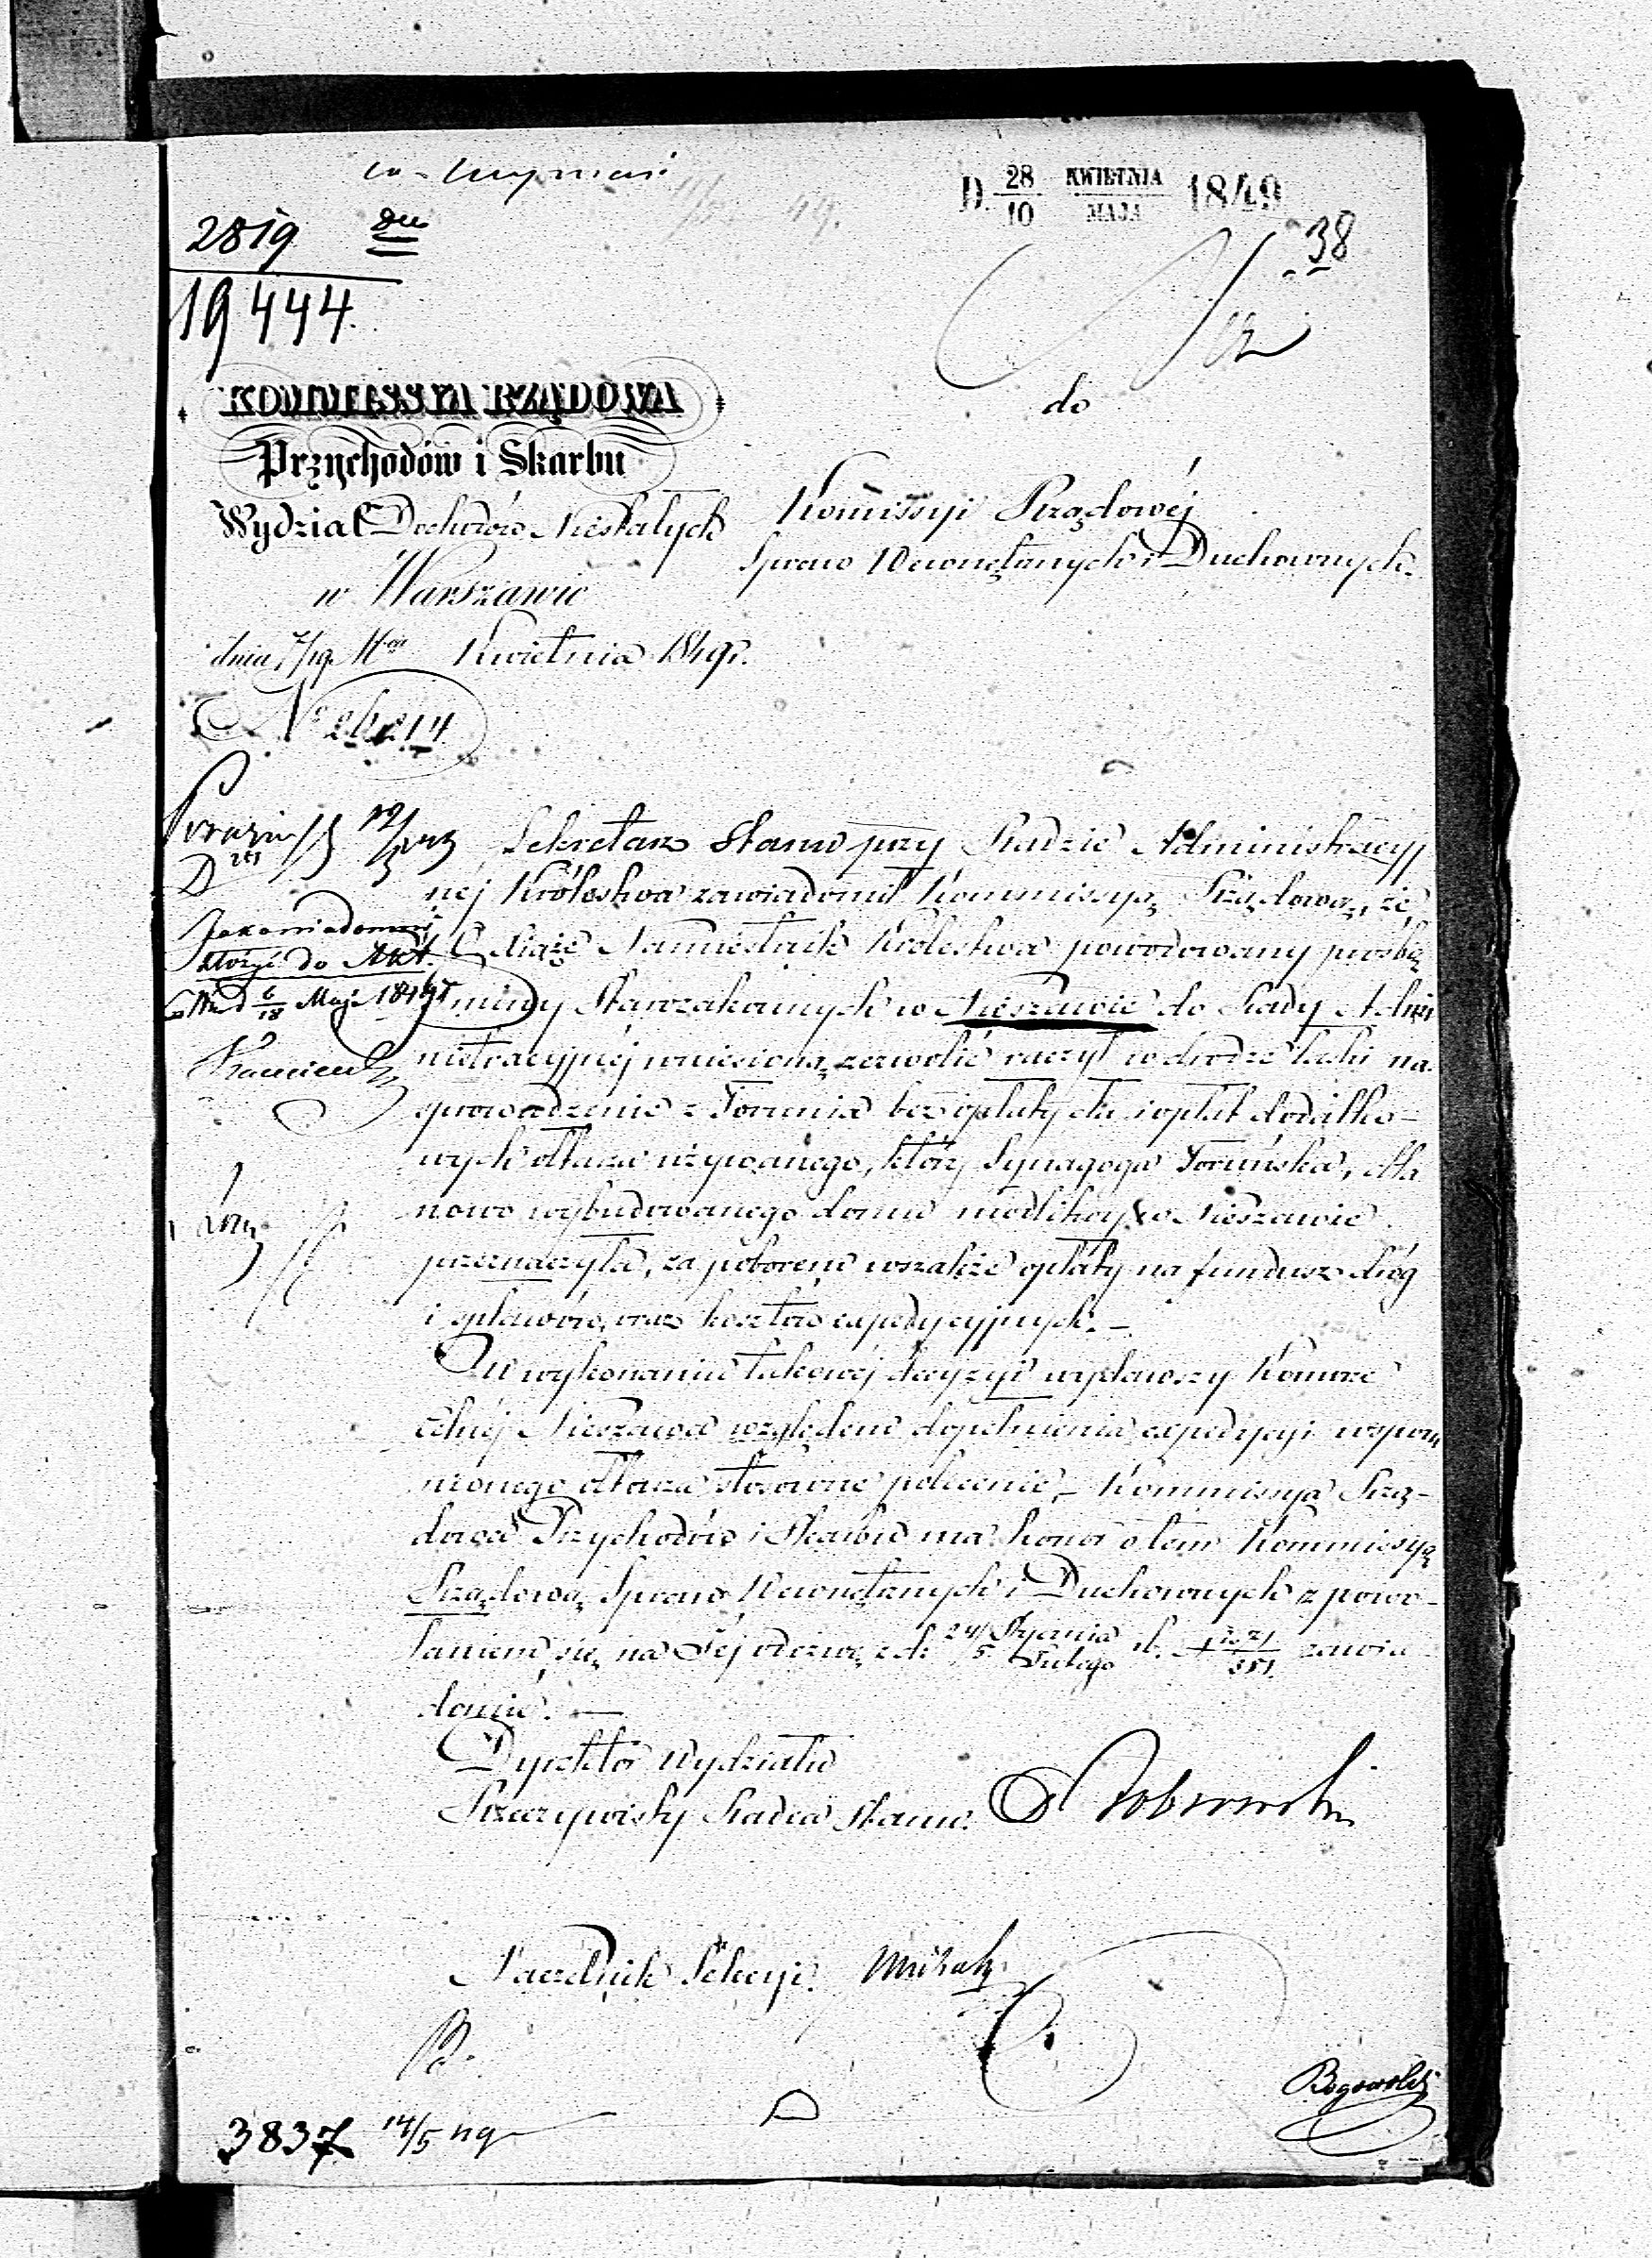 D. 28/10 KWIETNIA/MAJA 1849
2819
19444.
38
KOMMISSYA RZĄDOWA
Przychodów i Skarbu
Wydział Dochodów Niestałych
w Warszawie
dnia 7/19 Kwietnia 1849 r.
do
Kommissyi Rządowéj
Spraw Wewnętrznych i Duchownych.
Jako wiadomość
złożyć do Akt.
d 6/18 Maja 1849 r
Sekretarz Stanu przy Radzie Administracyj
néj Królestwa zawiadomił Kommissyą Rządową, że
Xiąże Namiestnik Królestwa powodowany prośbą
Gminy Starozakonnych w Nieszawie do Rady Admi
nistracyjnéj wniesioną, zezwolić raczył w drodze łaski na
sprowadzenie z Torunia bez opłaty cła i opłat dodatko-
wych ołtarza używanego, który Synagoga Toruńska, dla
nowo wybudowanego domu modlitwy w Nieszawie
przeznaczyła, za poborem wszakże opłaty na fundusz dróg
i spławów, oraz kosztów expedycyjnych. —
W wykonaniu takowéj decyzyi wydawszy Komorze
Celnéj Nieszawa względem dopełnienia expedycyi wspom
nionego ołtarza stosowne polecenie, — Kommissya Rzą-
dowa Przychodów i Skarbu ma honor o tem Kommissyą
Rządową Spraw Wewnętrznych i Duchownych z powo-
łaniem się na Jéj odezwę z d. 24/5 Stycznia/Lutego r. b. zawia
domić. —
Dyrektor Wydziału
Rzeczywisty Radca Stanu.
Naczelnik Sekcyi.
3837 14/5